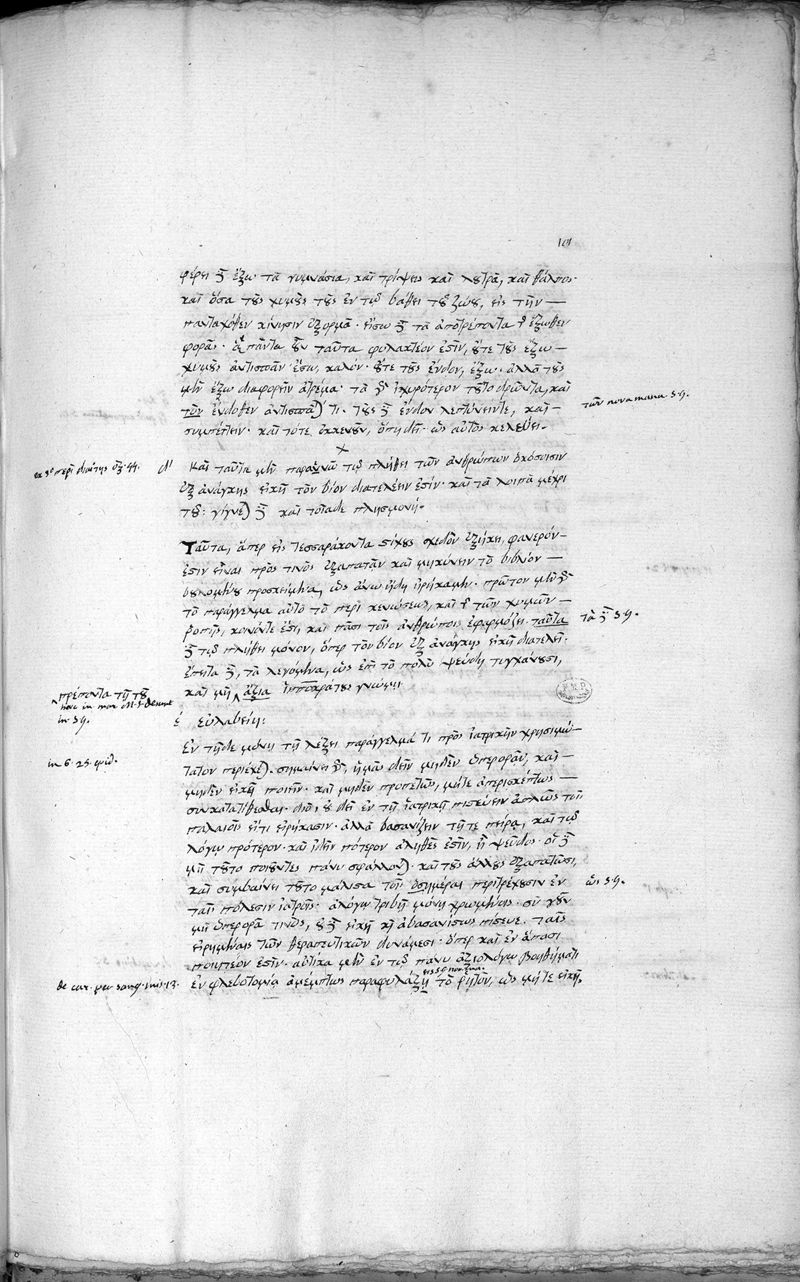 101
φέρει δὲ ἔξω τὰ γυμνάσια, καὶ τρίψεις καὶ λουτρὰ, καὶ θάλπος.
καὶ ὅσα τοὺς χυμοὺς τοὺς ἐν τῷ βάθει τοῦ ζώου, εἰς τὴν —
πανταχόθεν κίνησιν ἐξορμᾷ. εἴσω δὲ τὰ ἀποτρέποντα τῆς ἔξωθεν
φορᾶς. ἅπαντα οὖν ταῦτα φυλακτέον ἐστὶν, οὔτε τοὺς ἔξω —
χυμοὺς ἀντισπᾶν ἔσω, καλόν. οὔτε τοὺς ἔνδον, ἔξω. ἀλλὰ τοὺς
μὲν ἔξω διαφορεῖν ἀτρέμα. τὰ γὰρ ἰσχυρότερον τοῦτο δρῶντα, καὶ
τῶν ἔνδοθεν ἀντισπᾶται τι. τοὺς δὲ ἔνδον λεπτύνειν τε, καὶ —
συμπέττειν. καὶ τότε ἐκκενοῦν, ὅπη δεῖ. ὡς αὐτὸς κελεύει.
τῶν nova manu 59.
ex 3º περὶ διαίτης ὀξ. 44. δ'
Καὶ ταῦτα μὲν παραινῶ τῷ πλήθει τῶν ἀνθρώπων ὁκόσοισιν
ἐξ ἀνάγκης εἰκῆ τὸν βίον διατελέειν ἐστίν. καὶ τὰ λοιπὰ μέχρι
τοῦ: γίγνεται δὲ καὶ τοιάδε πλησμονή.
Ταῦτα, ἅπερ εἰς τεσσαράκοντα στίχους σχεδὸν ἐξήκει, φανερόν —
ἐστιν εἶναι πρός τινος ἐξαπατᾶν καὶ μηκύνειν τὸ βιβλίον —
βουλομένου προσκείμενα, ὡς ἄνω ἤδη εἰρήκαμεν. πρῶτον μὲν γὰρ
τὸ παράγγελμα αὐτὸ τὸ περὶ κενώσεως, καὶ τῆς τῶν χυμῶν —
ῥοπῆς, κοινόν τε ἐστι, καὶ πᾶσι τοῖς ἀνθρώποις ἐφαρμόζει. ταῦτα
δὲ τῷ πλήθει μόνον, ὅπερ τὸν βίον ἐξ ἀνάγκης εἰκῆ διατελεῖ.
ἔπειτα δὲ, τὰ λεγόμενα, ὡς ἐπὶ τὸ πολὺ ψευδῆ τυγχάνουσι,
καὶ μὴ ἄξια Ἱπποκράτους γνώμῃ
τὰ δὲ 59.
πρέποντα τῇ τοῦ
in 59.
ε' Εὐλαβείη:
Ἐν τῇδε μόνῃ τῇ λέξει παράγγελμά τι πρὸς ἰατρικὴν χρησιμώ-
τατον περιέχεται. σημαίνει γὰρ, ἡμᾶς δεῖν μηδὲν ὑπερορᾶν, καὶ —
μηδὲν εἰκῆ ποιεῖν. καὶ μηδὲν προπετῶς, μήτε ἀπερισκέπτως —
συγκατατίθεσθαι. διὸ, οὐ δεῖ ἐν τῇ ἰατρικῇ πιστεύειν ἁπλῶς τοῖς
παλαιοῖς εἴ τι εἰρήκασιν. ἀλλὰ βασανίζειν τῇ τε πείρᾳ, καὶ τῷ
λόγῳ πρότερον. καὶ ἰδεῖν πότερον ἀληθές ἐστιν, ἢ ψεῦδος. οἱ δὲ
μὴ τοῦτο ποιοῦντες πάνυ σφάλλονται. καὶ τοὺς ἄλλους ἐξαπατῶσι,
καὶ συμβαίνει τοῦτο μάλιστα τοῖς ὁσημέραι περιτρέχουσιν ἐν
ταῖς πόλεσιν ἰατροῖς. ἀλόγῳ τριβῇ μόνῃ χρωμένοις. σὺ γοῦν
μὴ ὑπερόρα τινὸς, οὐδὲ εἰκῆ καὶ ἀβασανίστως πίστευε. ταῖς
εἰρημέναις τῶν θεραπευτικῶν δυνάμεσι. ὅπερ καὶ ἐν ἅπασι
ποιητέον ἐστίν. αὐτίκα μὲν ἐν τῷ πάνυ ἀξιολόγῳ βοηθήματι
ἐν φλεβοτομίᾳ ἀμέμπτως παραφυλάξῃ τὸ ῥητὸν, ὡς μήτε εἰκῆ,
in 6. 25. φύλ.
de cur. per sang. mis. 13.